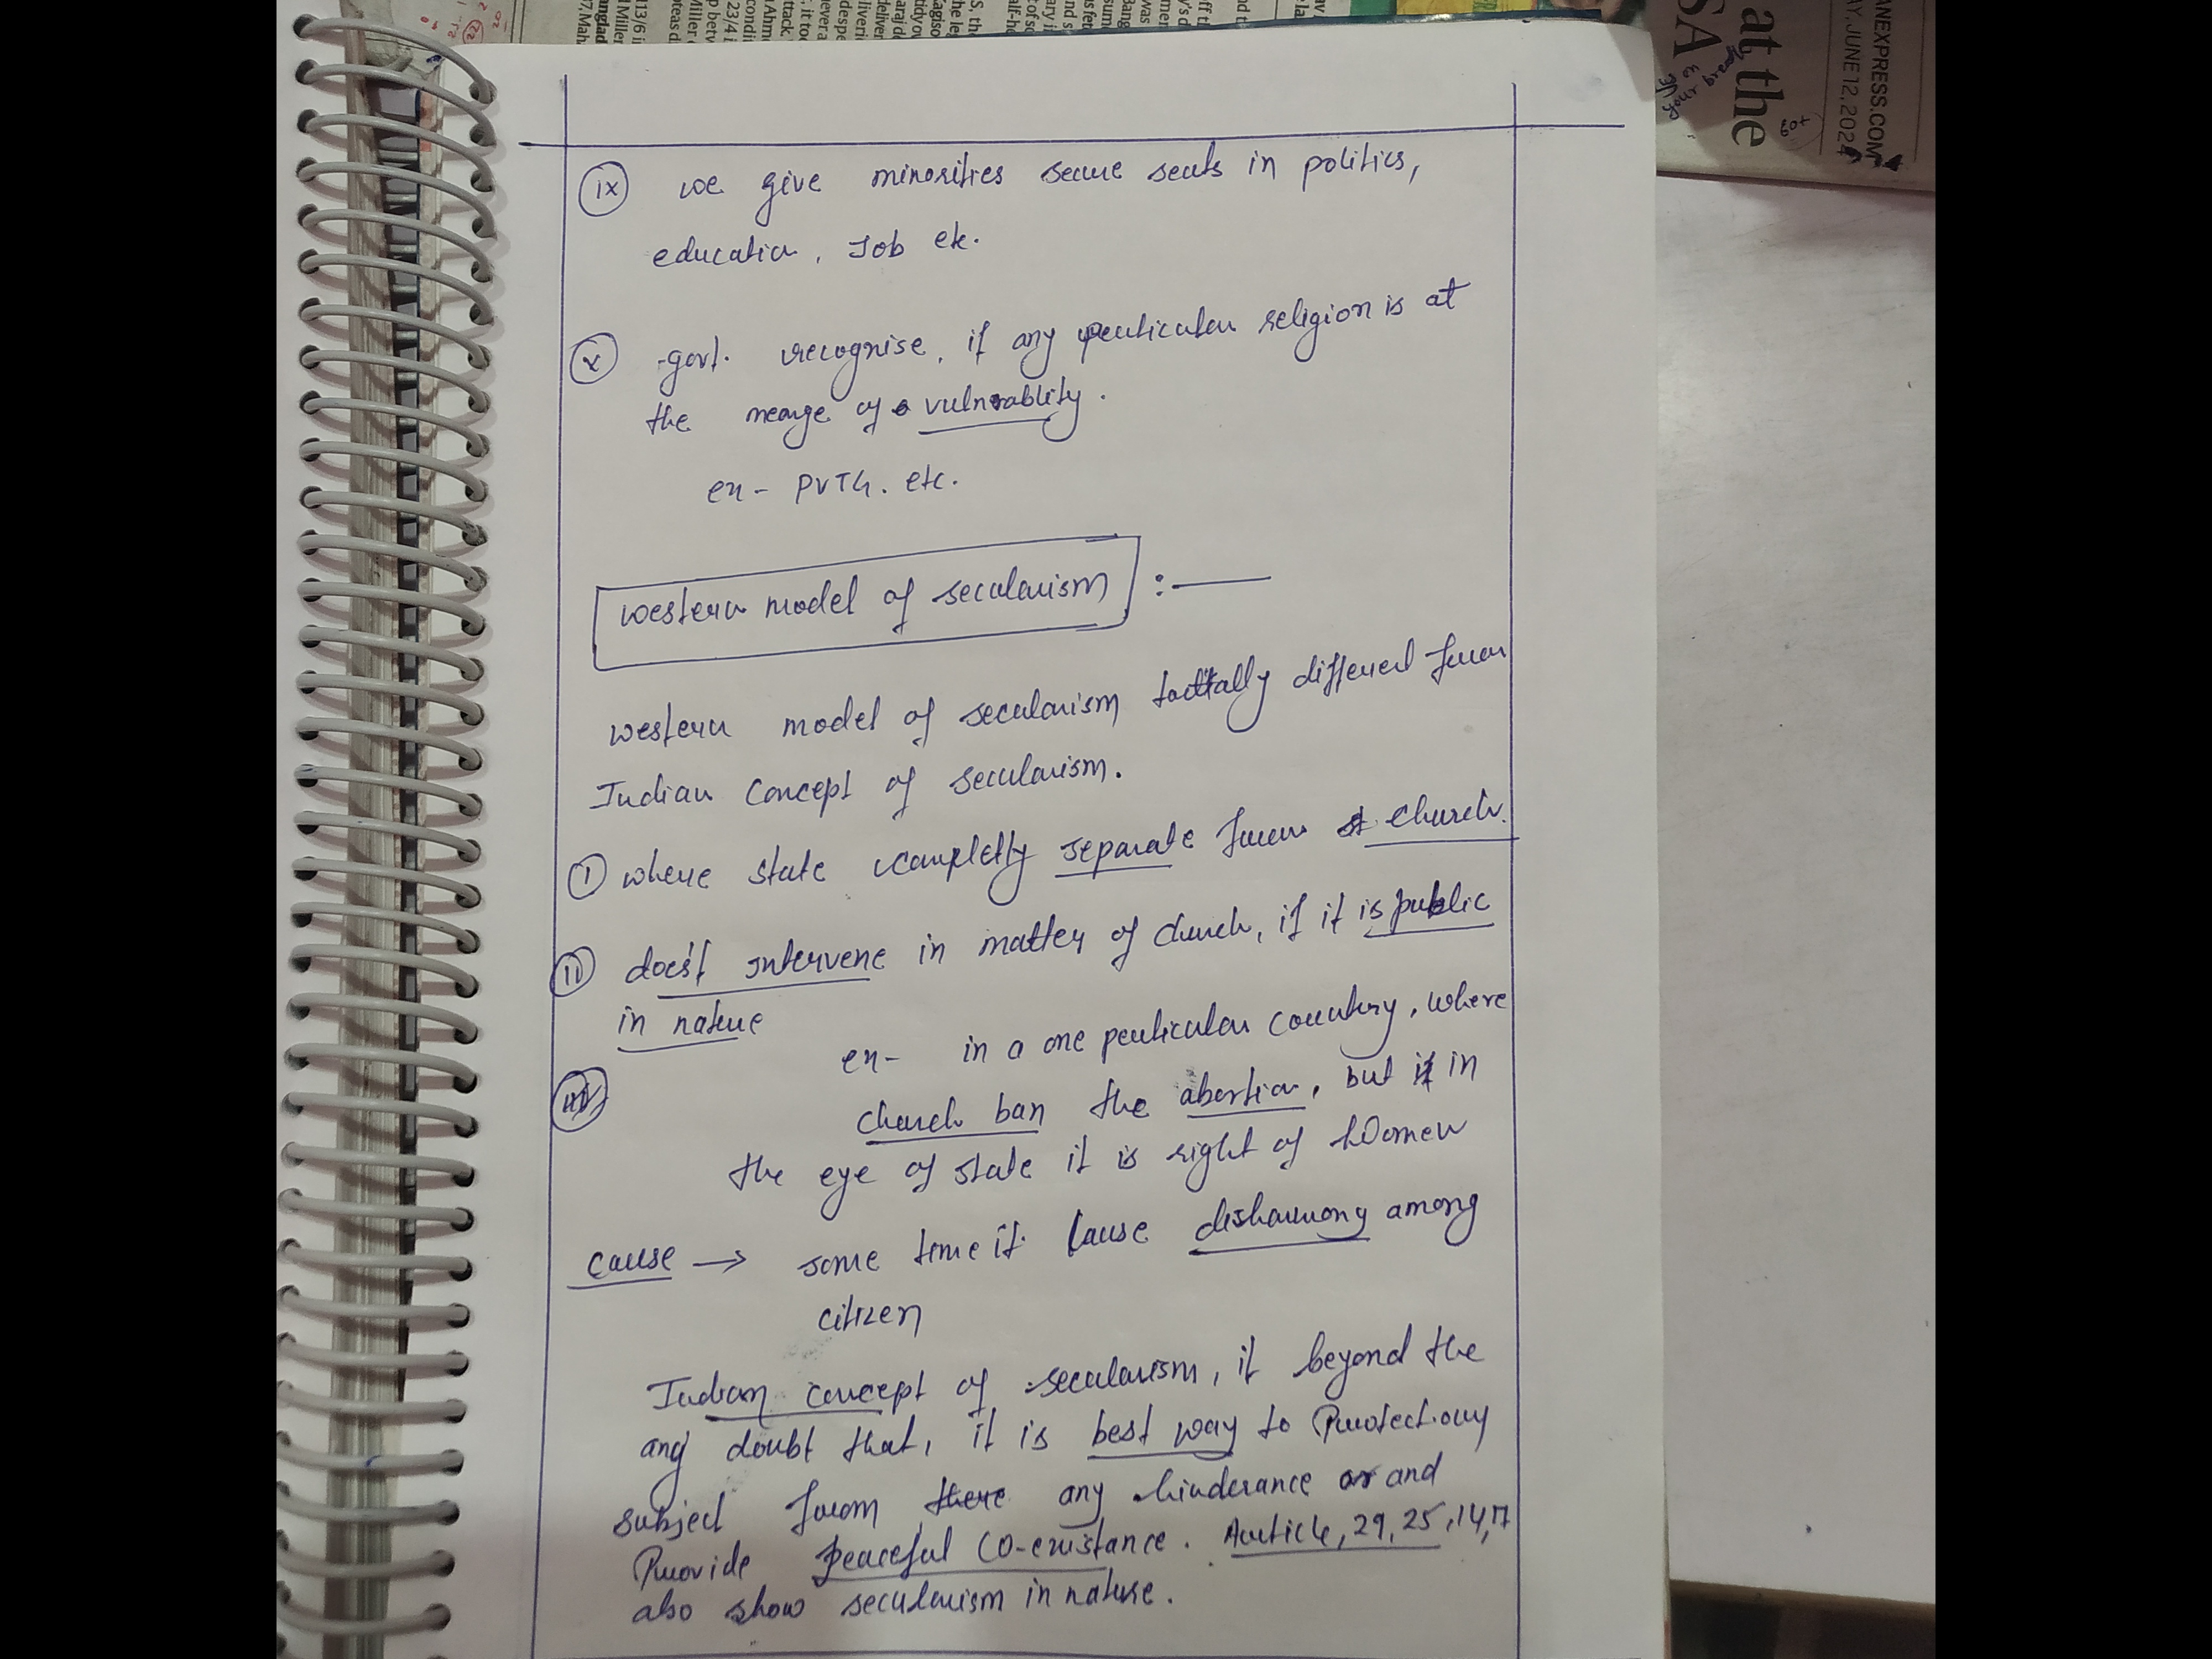 ix we give minorities secure seats in politics,
education, Job etc.
x govt. recognise, if any particular religion is at
the mearge of vulnrablity.
ex- PVTG. etc.
western model of secularism :—
western model of secularism totally different from
Indian Concept of secularism.
i where state completly separate from church.
ii does't intervene in matter of church, if it is public
in nature
ex- in a one particular country, where
church ban the abortion, but in
the eye of state it is right of women
cause → some time it cause disharmony among
citizen
Indian concept of secularism, it beyond the
any doubt that, it is best way to Protect any
subject from any hinderance and
Provide peaceful co-existance. Article, 29, 25, 14, 17
also show secularism in nature.
ANEXPRESS.COM
AY, JUNE 12, 2024
at the
SA
your bread